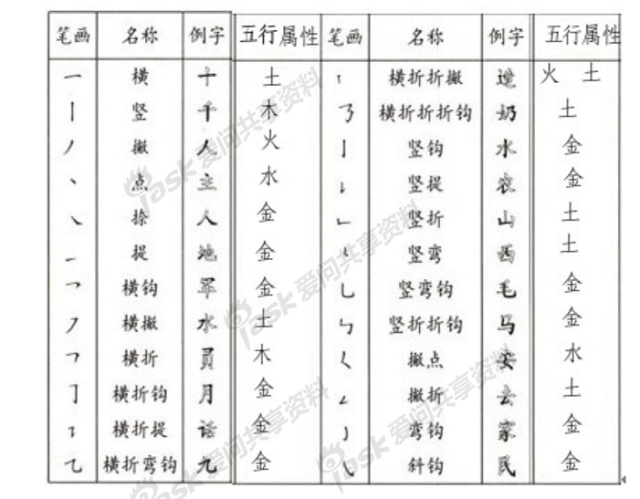 笔画 名称 例字 五行属性 笔画 名称 例字 五行属性
一 横 十 土 横折折撇 火 土
丨 竖 千 木 ㇌ 横折折折钩 奶 土
丿 撇 人 火 亅 竖钩 水 金
丶 点 主 水 ㇙ 竖提 农 金
㇏ 捺 人 金 ㇗ 竖折 山 土
㇀ 提 地 金 ㇄ 竖弯 西 土
乛 横钩 军 金 乚 竖弯钩 毛 金
㇇ 横撇 水 土 ㇉ 竖折折钩 马 金
㇕ 横折 員 木 ㇛ 撇点 安 水
㇆ 横折钩 月 金 ㇜ 撇折 去 土
㇊ 横折提 话 金 ㇁ 弯钩 家 金
㇈ 横折弯钩 九 金 ㇂ 斜钩 民 金
iask 爱问共享资料
iask 爱问共享资料
iask 爱问共享资料
iask 爱问共享资料